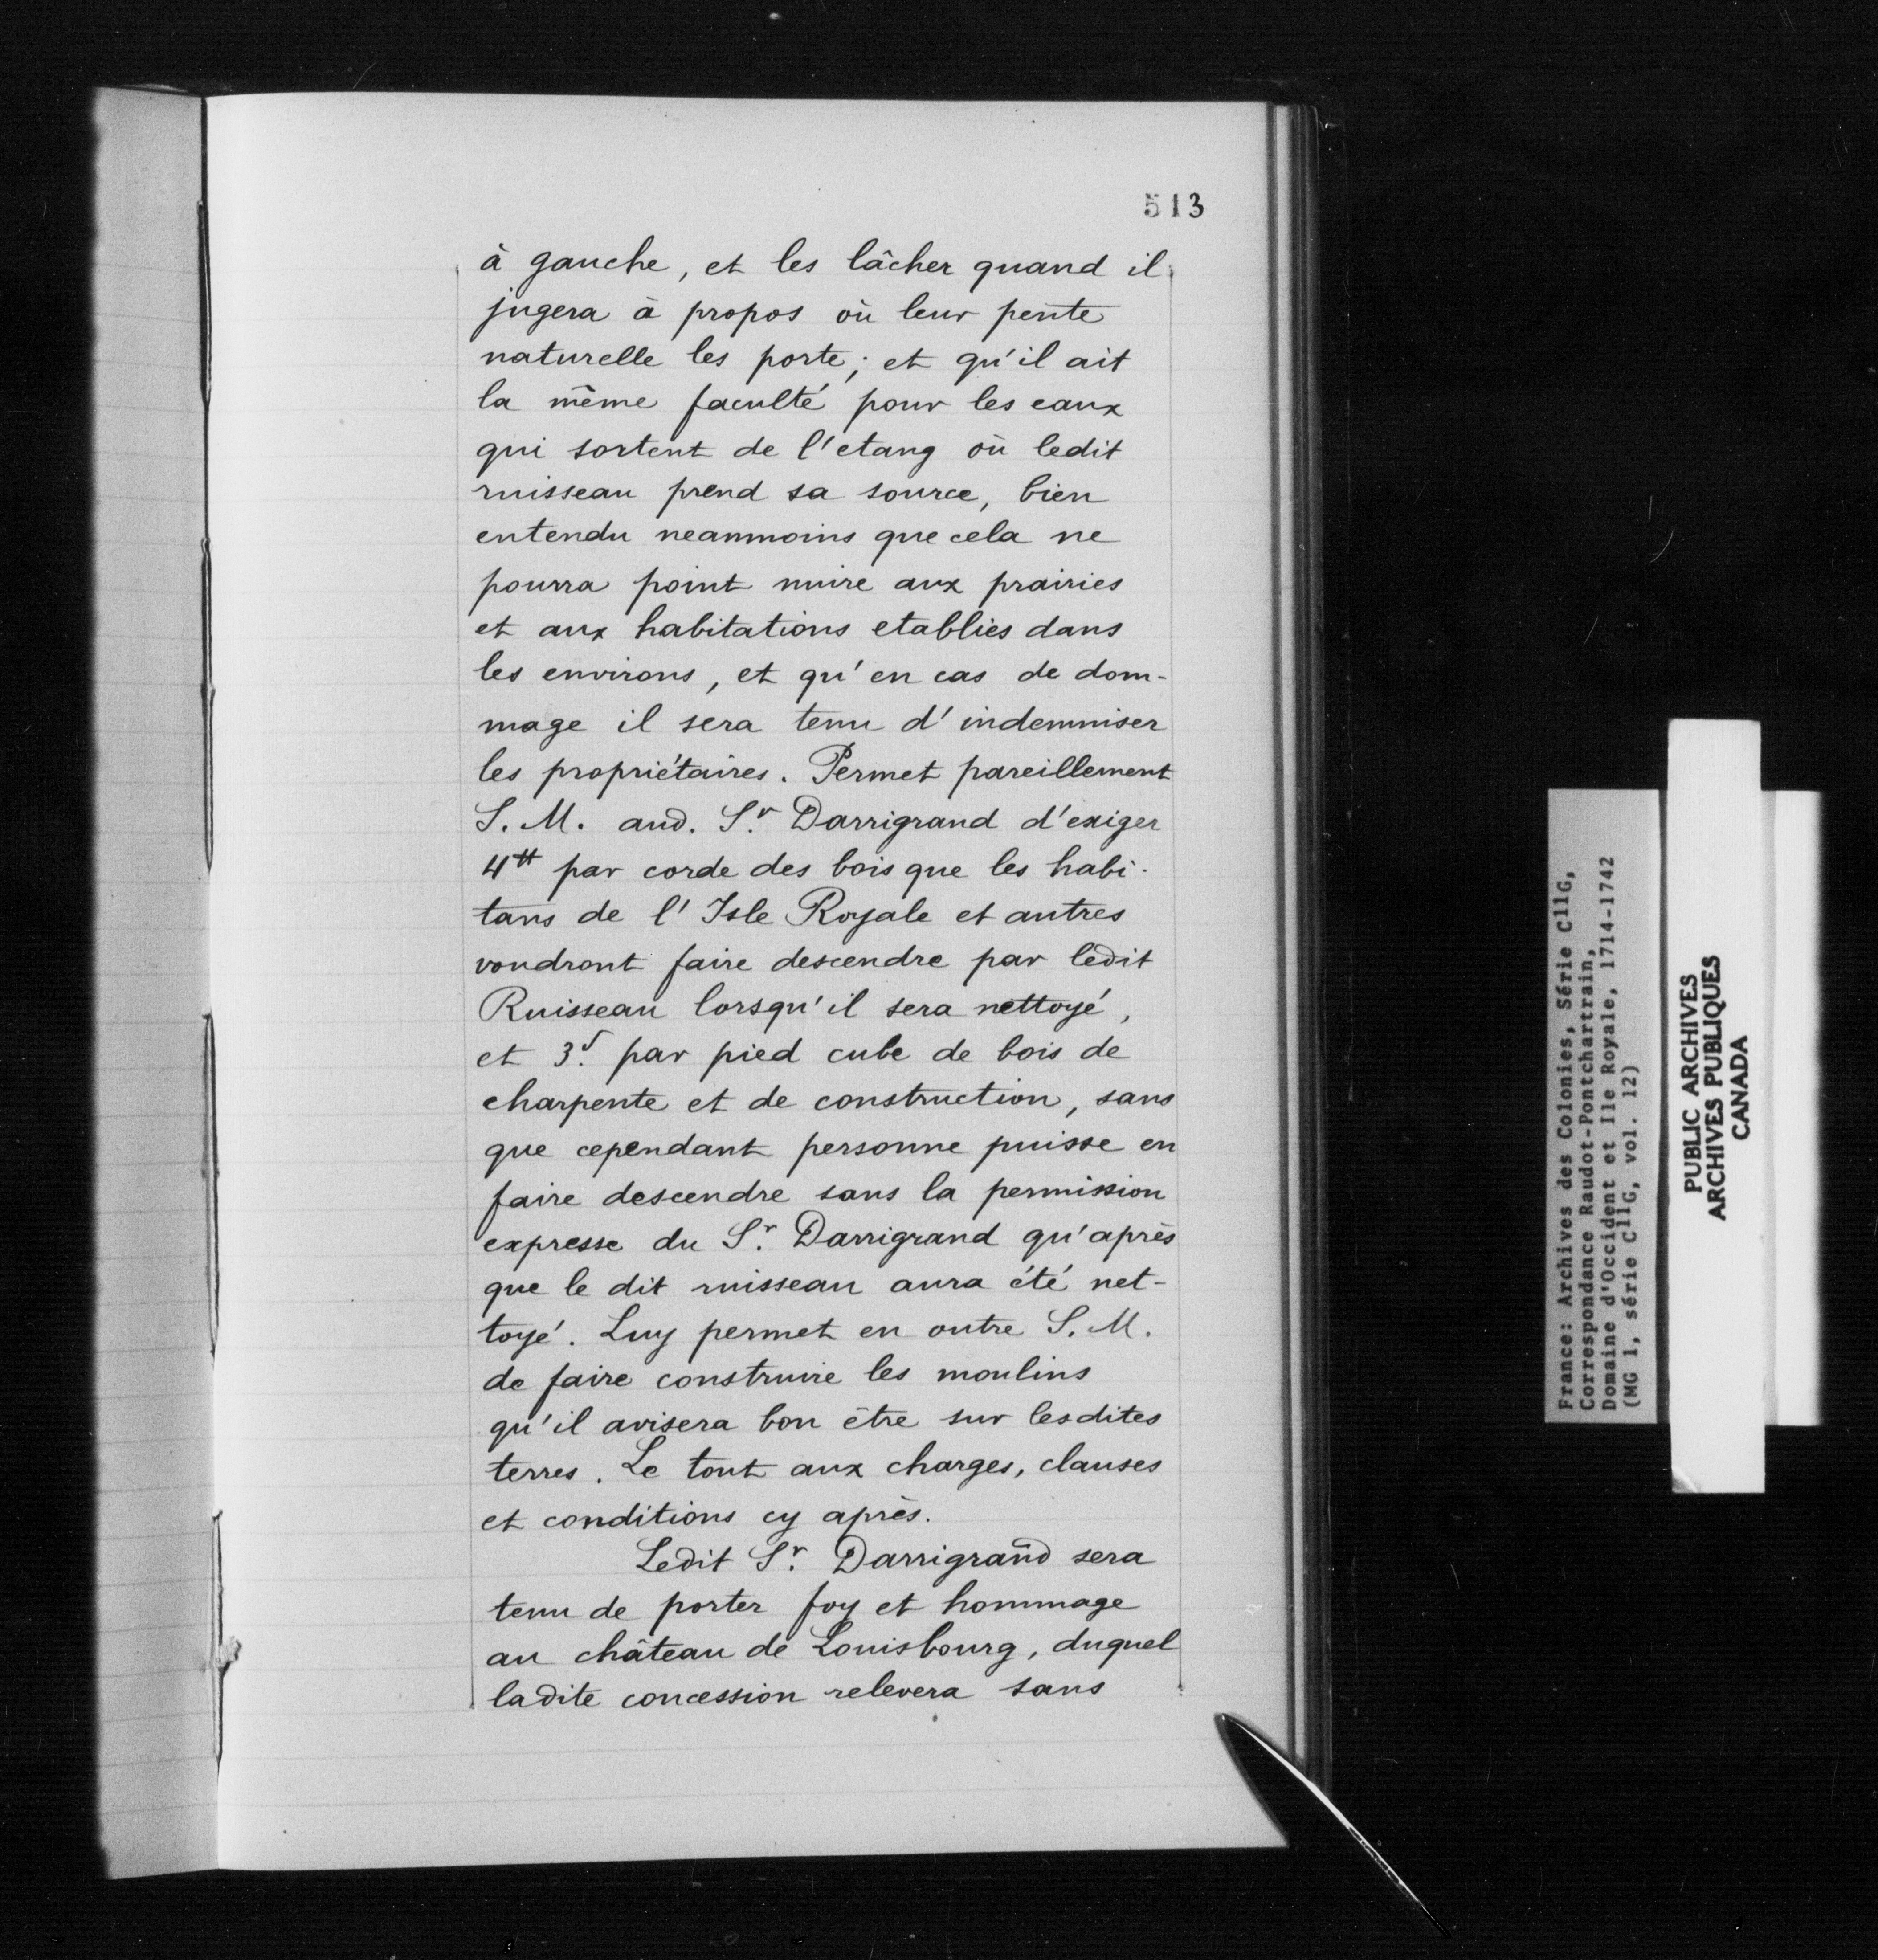 513
à gauche, et les lâcher quand il
jugera à propos où leur pente
naturelle les porte; et qu'il ait
la même faculté pour les eaux
qui sortent de l'etang où ledit
ruisseau prend sa source, bien
entendu neanmoins que cela ne
pourra point nuire aux prairies
et aux habitations etablies dans
les environs, et qu'en cas de dom-
mage il sera tenu d'indemniser
les propriétaires. Permet pareillement
S. M. aud. Sr. Darrigrand d'exiger
4tt par corde des bois que les habi-
tans de l'Isle Royale et autres
voudront faire descendre par ledit
Ruisseau lorsqu'il sera nettoyé,
et 3s. par pied cube de bois de
charpente et de construction, sans
que cependant personne puisse en
faire descendre sans la permission
expresse du Sr. Darrigrand qu'après
que le dit ruisseau aura été net-
toyé. Luy permet en outre S. M.
de faire construire les moulins
qu'il avisera bon être sur lesdites
terres. Le tout aux charges, clauses
et conditions cy après.
Ledit Sr. Darrigrand sera
tenu de porter foy et hommage
au château de Louisbourg, duquel
ladite concession relevera sans
France: Archives des Colonies, Série C11G,
Correspondance Raudot-Pontchartrain,
Domaine d'Occident et Ile Royale, 1714-1742
(MG 1, série C11G, vol. 12)
PUBLIC ARCHIVES
ARCHIVES PUBLIQUES
CANADA